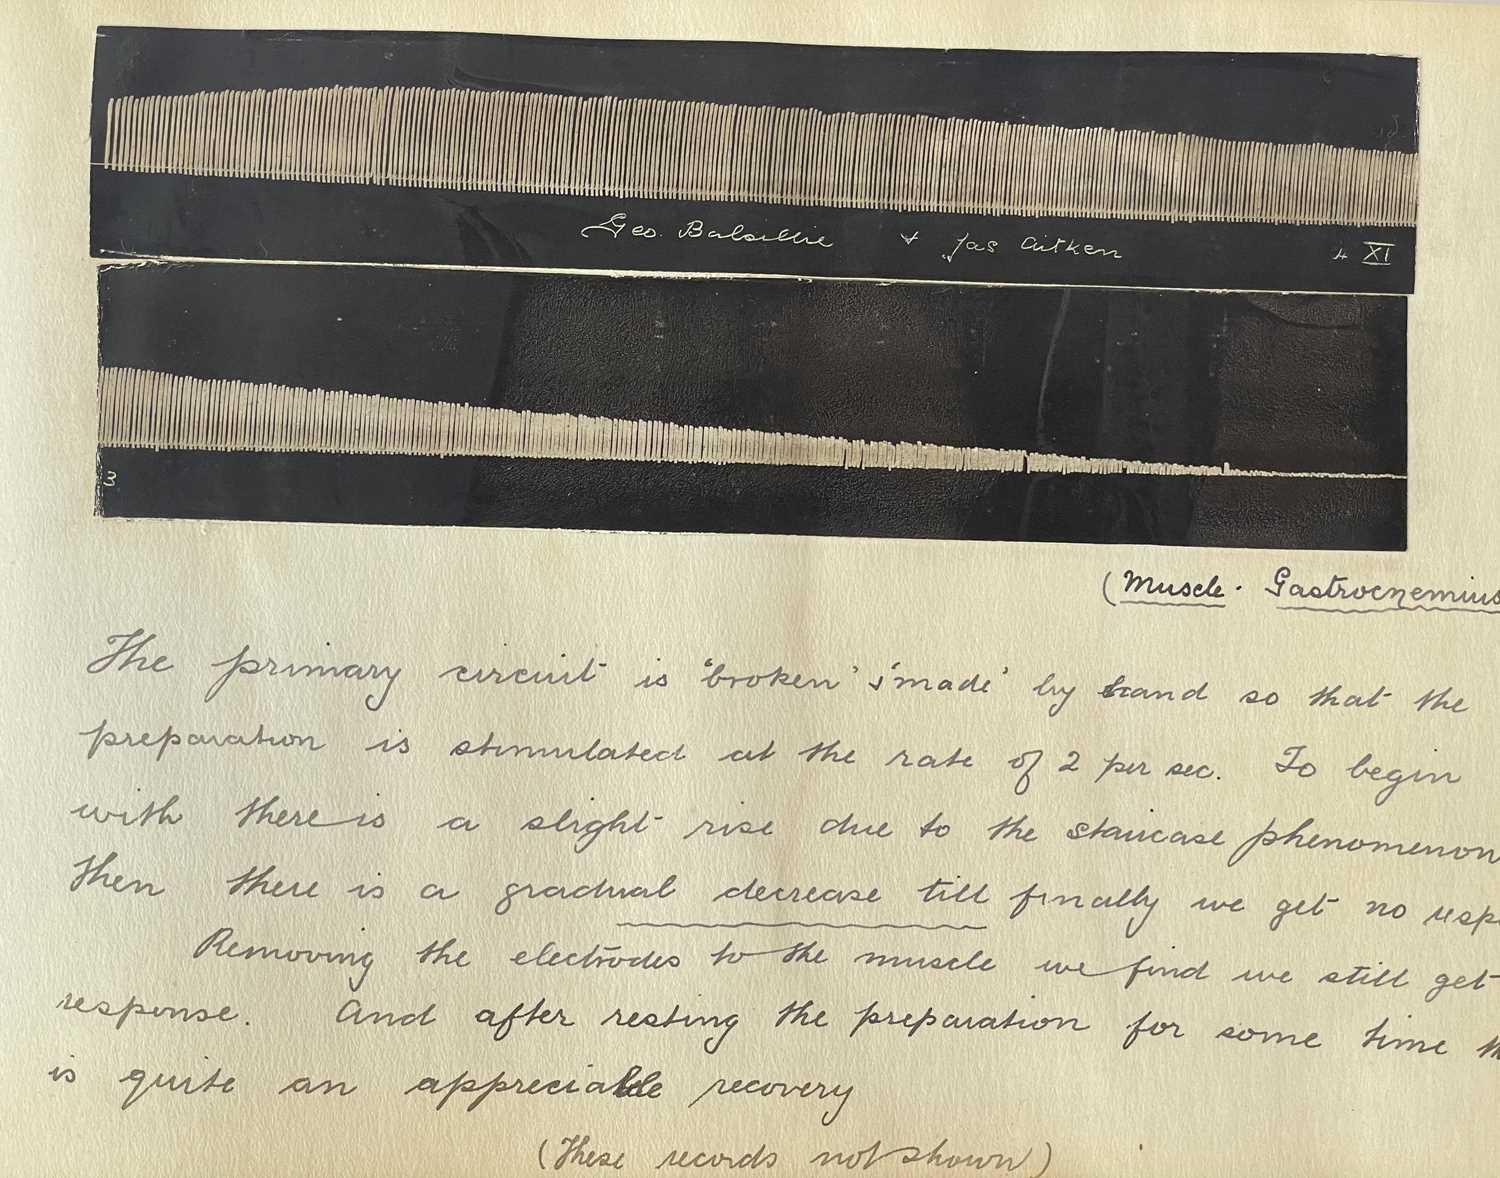 Geo. Balsillie + Jas Aitken 4 XI
3
(Muscle. Gastrocnemius
The primary circuit is 'broken' & 'made' by hand so that the
preparation is stimulated at the rate of 2 per sec. To begin
with there is a slight rise due to the staircase phenomenon
then there is a gradual decrease till finally we get no resp
Removing the electrodes to the muscle we find we still get
response. And after resting the preparation for some time th
is quite an appreciable recovery
(These records not shown)